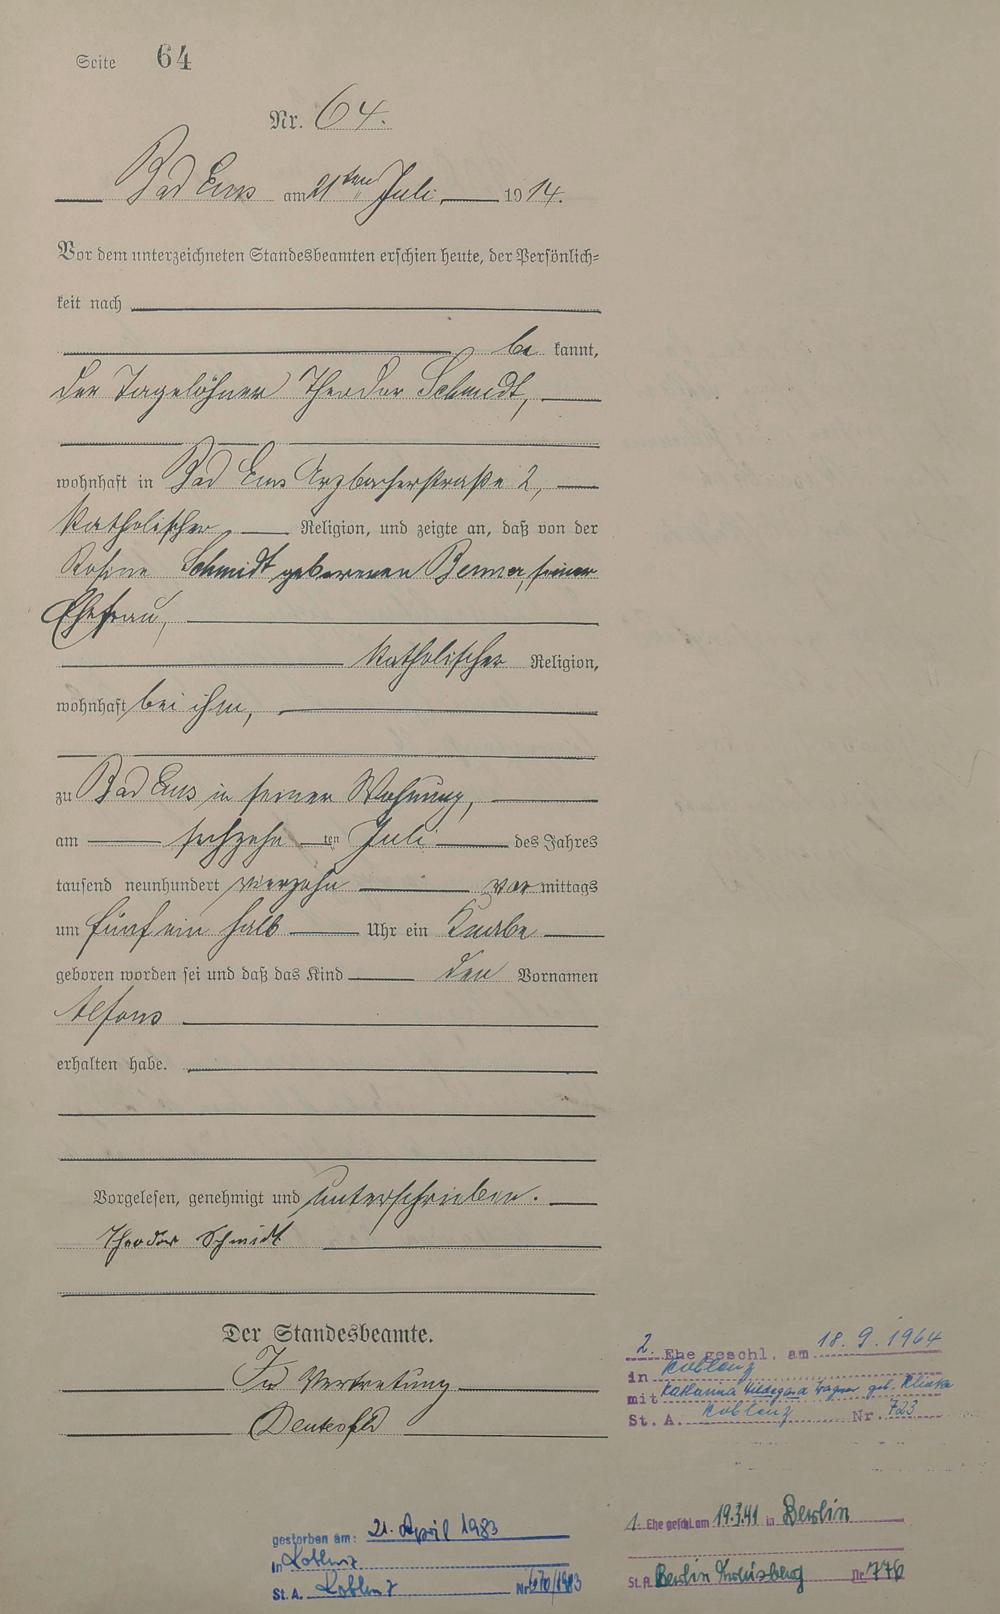 Seite 64
Nr. 64.
Bad Ems am 21ten Juli 1914.
Vor dem unterzeichneten Standesbeamten erschien heute, der Persönlich=
keit nach
be kannt,
der Tagelöhner Theodor Schmidt,
wohnhaft in Bad Ems Arzbacherstraße 2,
katholischer Religion, und zeigte an, daß von der
Rosine Schmidt geborenen Benner, seiner
Ehefrau,
katholischer Religion,
wohnhaft bei ihm,
zu Bad Ems in seiner Wohnung,
am sechzehn ten Juli des Jahres
tausend neunhundert vierzehn vor mittags
um fünf ein halb Uhr ein Knabe
geboren worden sei und daß das Kind den Vornamen
Alfons
erhalten habe.
Vorgelesen, genehmigt und unterschrieben.
Theodor Schmidt
Der Standesbeamte.
In Vertretung
2. Ehe geschl. am 18.9.1964
in Koblenz
mit Katharina Hildegard Wagner geb.
St. A. Koblenz Nr. 723
1. Ehe geschl. am 19.3.41 in Berlin
St. A. Berlin Kreuzberg Nr. 776
gestorben am: 21. April 1983
in Koblenz
St. A. Koblenz Nr. 670/1983